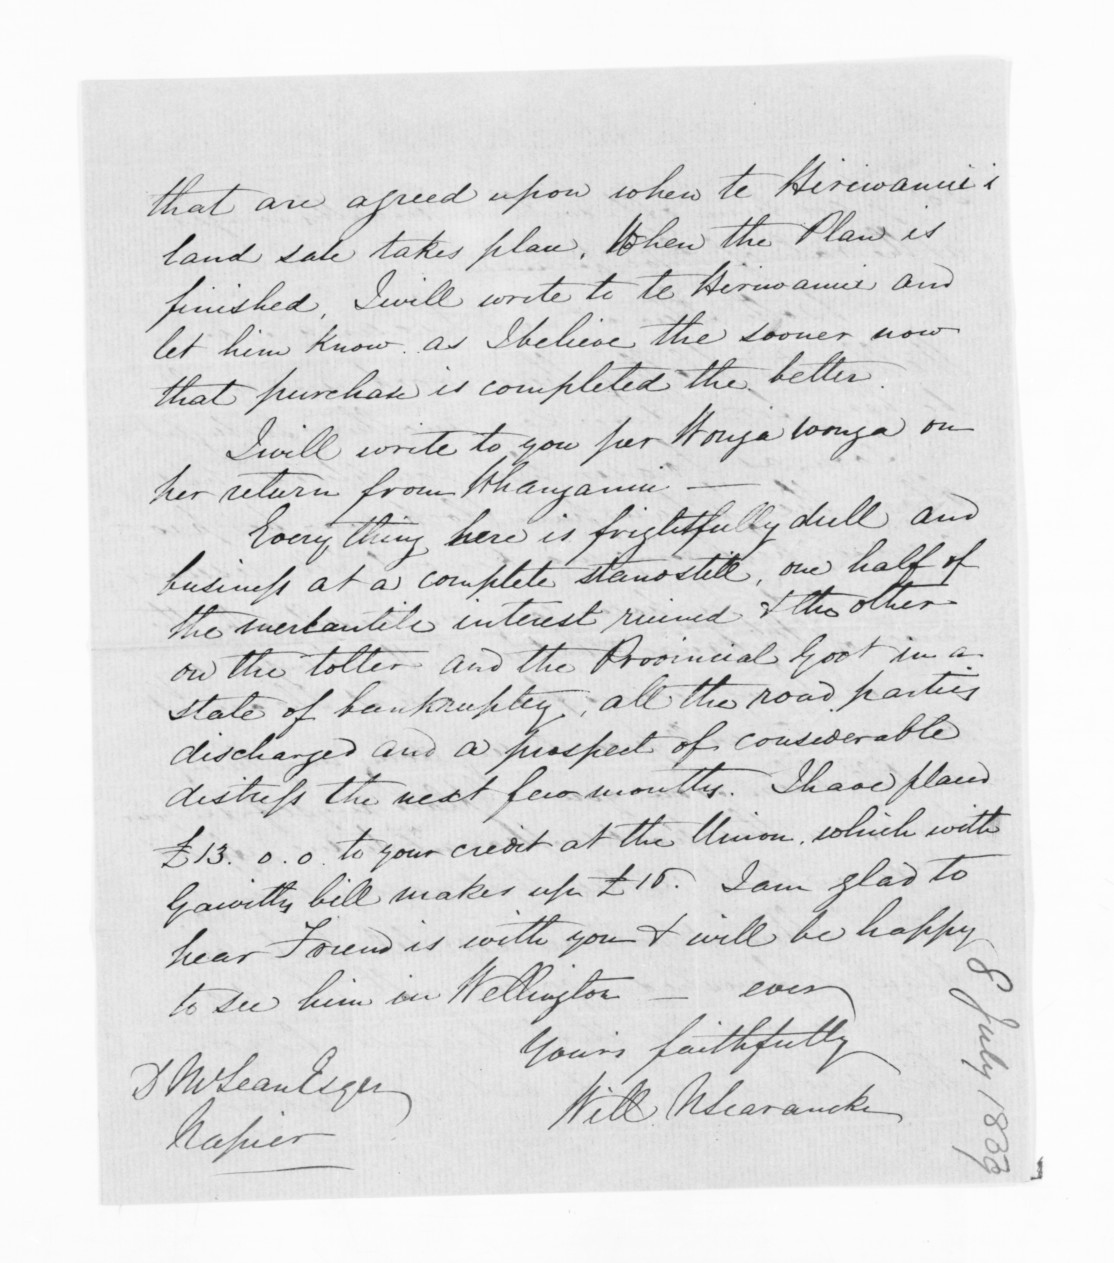 that are agreed upon when te Hiriwanui's
land sale takes place. When the Plan is
finished, I will write to te Hiriwanui and
let him know. as I believe the sooner now
that purchase is completed the better.
I will write to you per Wonga wonga on
her return from Whanganui —
Everything here is frightfully dull and
business at a complete standstill, one half of
the mercantile interest ruined & the other
on the totter and the Provincial Govt in a
state of bankruptcy, all the road parties
discharged and a prospect of considerable
distress the next few months. I have placed
£13. 0. 0. to your credit at the Union, which with
Gawiths bill makes up £15. I am glad to
hear Friend is with you & will be happy
to see him in Wellington — ever
Yours faithfully
Will N Searancke
D McLean Esqer
Napier
8 July 1859